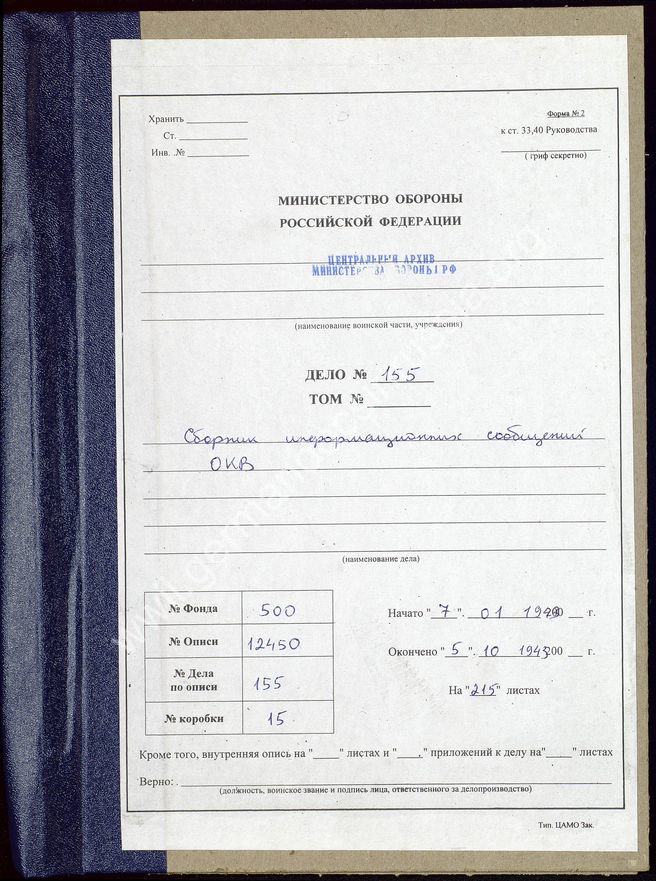 Хранить
Форма № 2
Ст.
к ст. 33,40 Руководства
Инв. .№
( гриф секретно)
МИНИСТЕРСТВО ОБОРОНЫ
РОССИЙСКОЙ ФЕДЕРАЦИИ
ЦЕНТРАЛЬНЫЙ АРХИВ
МИНИСТЕРСТВА ОБОРОНЫ РФ
(наименование воинской части, учреждения)
ДЕЛО № 155
ТОМ №
Сборник информационных сообщений
ОКВ
(наименование дела)
№ Фонда 500
№ Описи 12450
№ Дела
по описи 155
№ коробки 15
Начато "7". 01 1943 200 г.
Окончено "5". 10 1943 200 г.
На "215" листах
Кроме того, внутренняя опись на "____" листах и "____." приложений к делу на"____" листах
Верно: .
(должность, воинское звание и подпись лица, ответственного за делопроизводство)
Тип. ЦАМО Зак.